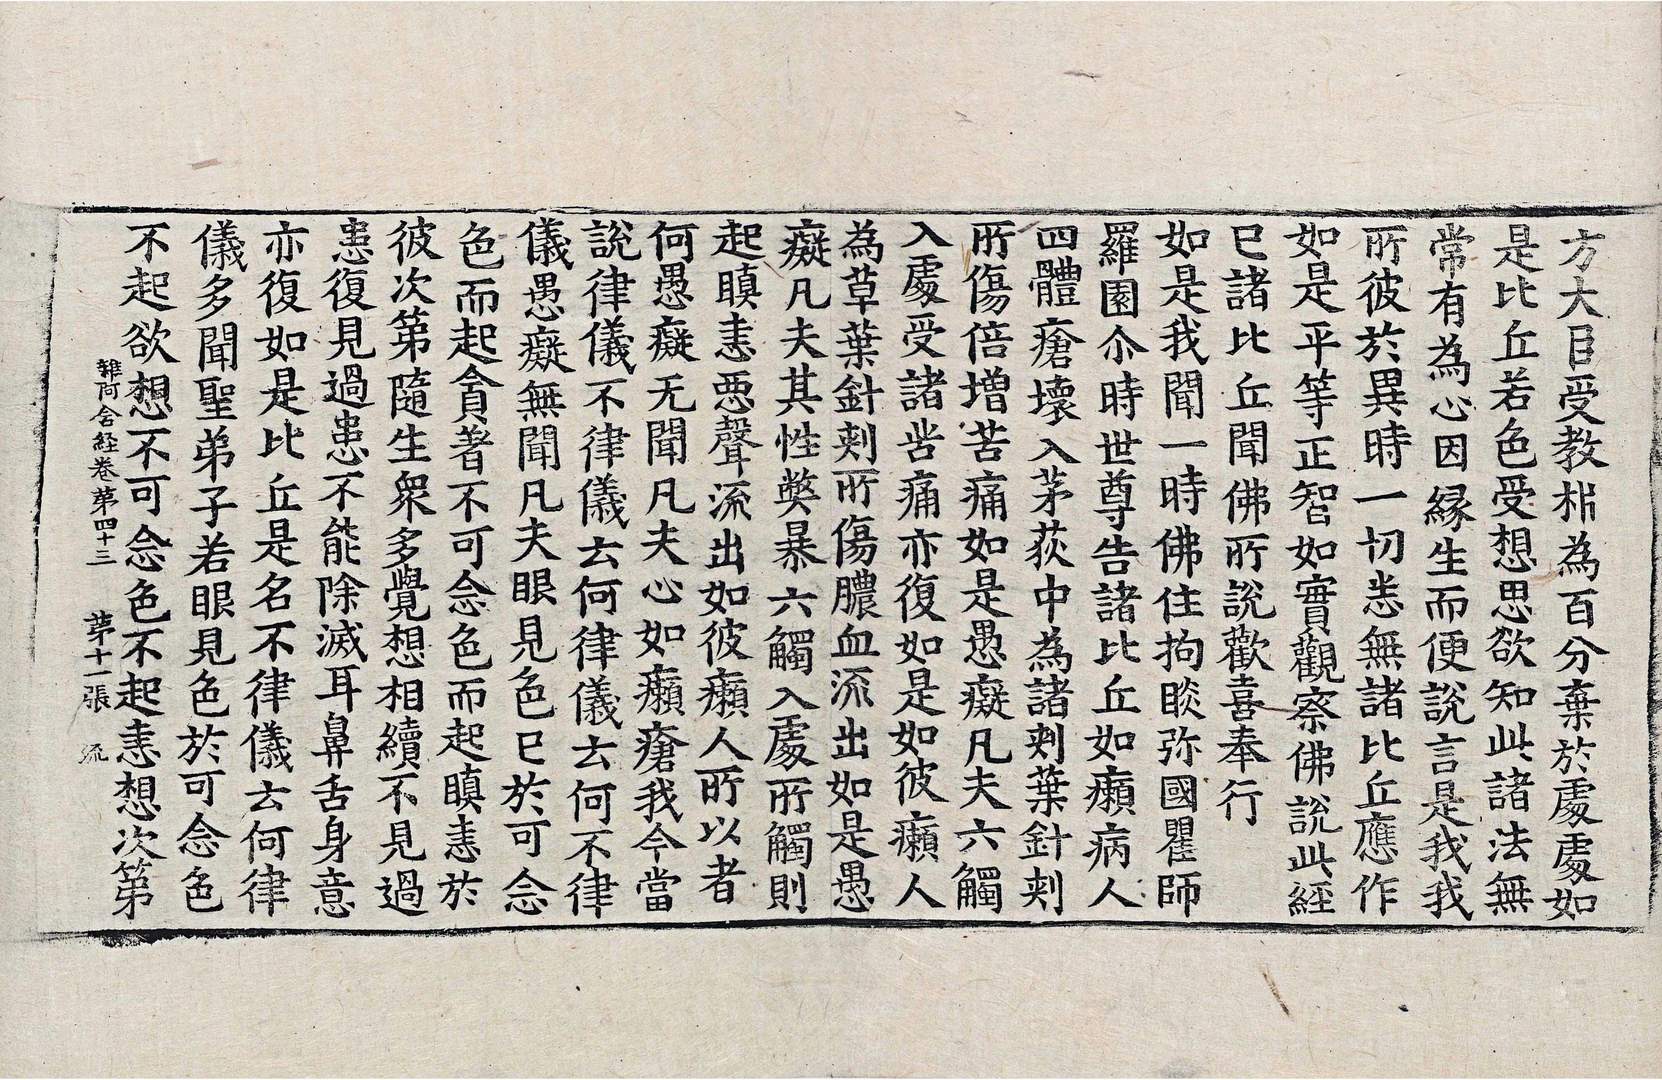 方大目受教枏為百分棄於處處如
是比丘若色受想思欲知此諸法無
常有為心因緣生而便說言是我我
所彼於異時一切悉無諸比丘應作
如是平等正智如實觀察佛說此經
已諸比丘聞佛所說歡喜奉行
如是我聞一時佛住拘睒弥國瞿師
羅園尒時世尊告諸比丘如癩病人
四體瘡壞入茅荻中為諸刾葉針刾
所傷倍增苦痛如是愚癡凡夫六觸
入處受諸苦痛亦復如是如彼癩人
為草葉針刾所傷膿血流出如是愚
癡凡夫其性弊暴六觸入處所觸則
起瞋恚惡聲流出如彼癩人所以者
何愚癡无聞凡夫心如癩瘡我今當
說律儀不律儀云何律儀云何不律
儀愚癡無聞凡夫眼見色已於可念
色而起貪著不可念色而起瞋恚於
彼次第隨生衆多覺想相續不見過
患復見過患不能除滅耳鼻舌身意
亦復如是比丘是名不律儀云何律
儀多聞聖弟子若眼見色於可念色
不起欲想不可念色不起恚想次第
雜阿含経卷第四十三 第十一張 流